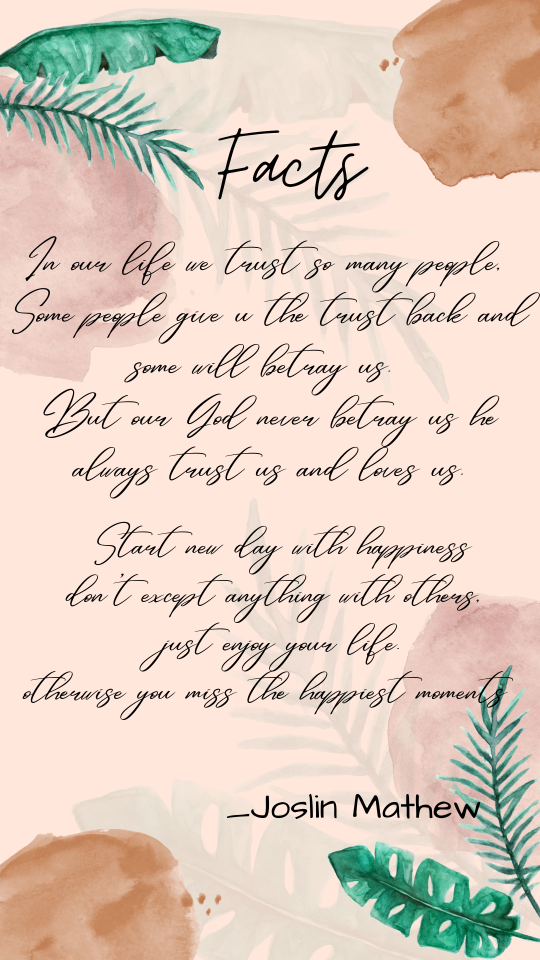 Facts
In our life we trust so many people,
Some people give u the trust back and
some will betray us.
But our God never betray us he
always trust us and loves us.
Start new day with happiness
don't except anything with others,
just enjoy your life.
otherwise you miss the happiest moments
_Joslin Mathew